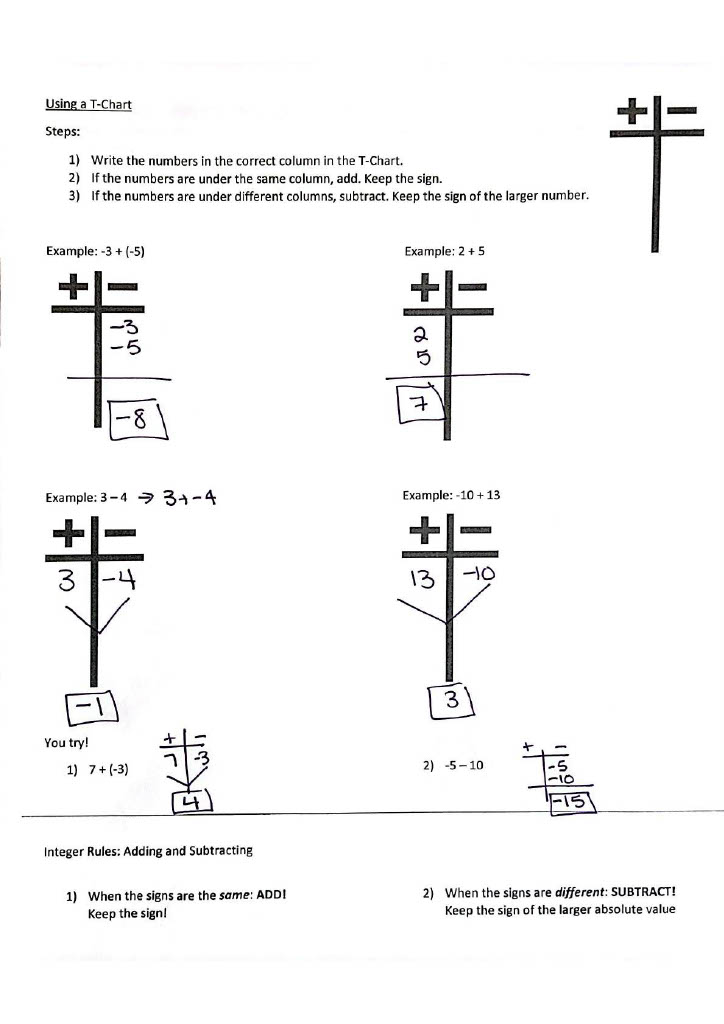 Using a T-Chart
+ −
Steps:
1) Write the numbers in the correct column in the T-Chart.
2) If the numbers are under the same column, add. Keep the sign.
3) If the numbers are under different columns, subtract. Keep the sign of the larger number.
Example: -3 + (-5)
+ −
-3
-5
-8
Example: 2 + 5
+ −
2
5
7
Example: 3 – 4 → 3+-4
+ −
3 -4
-1
Example: -10 + 13
+ −
13 -10
3
You try!
1) 7 + (-3)
+ −
7 -3
4
2) -5 – 10
+ −
-5
-10
-15
Integer Rules: Adding and Subtracting
1) When the signs are the same: ADD!
Keep the sign!
2) When the signs are different: SUBTRACT!
Keep the sign of the larger absolute value